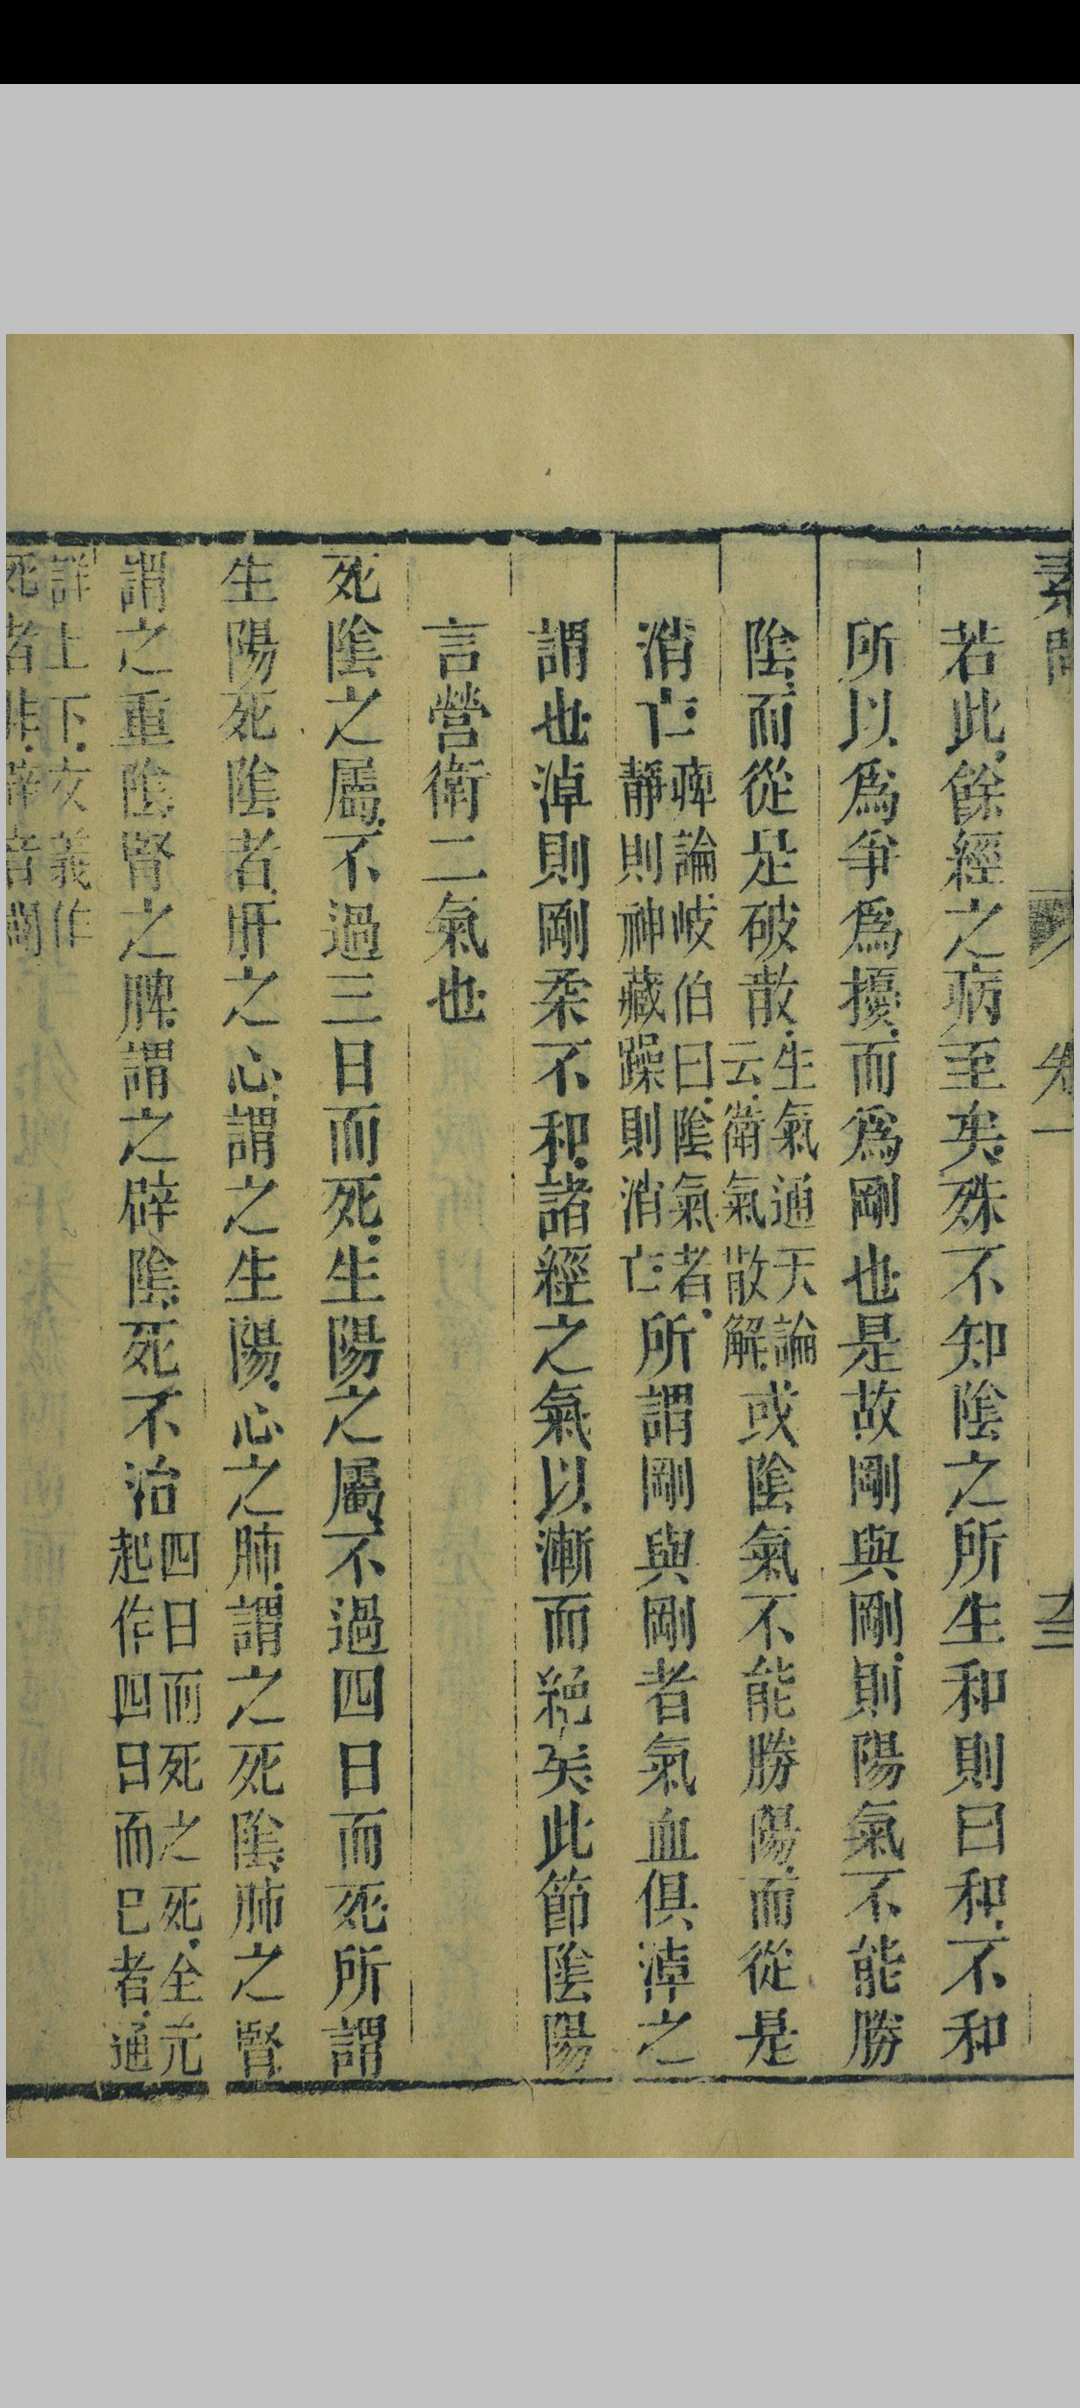 素問
卷一
若此餘經之病至矣殊不知陰之所生和則曰和不和
所以爲爭爲擾而爲剛也是故剛與剛則陽氣不能勝
陰而從是破散生氣通天論云衛氣散解或陰氣不能勝陽而從是
消亡痺論岐伯曰陰氣者靜則神藏躁則消亡所謂剛與剛者氣血俱淖之
謂也淖則剛柔不和諸經之氣以漸而絕矣此節陰陽
言營衛二氣也
死陰之屬不過三日而死生陽之屬不過四日而死所謂
生陽死陰者肝之心謂之生陽心之肺謂之死陰肺之腎
謂之重陰腎之脾謂之辟陰死不治四日而死之死全元起作四日而已者通
詳上下文義作死者非辟音闢